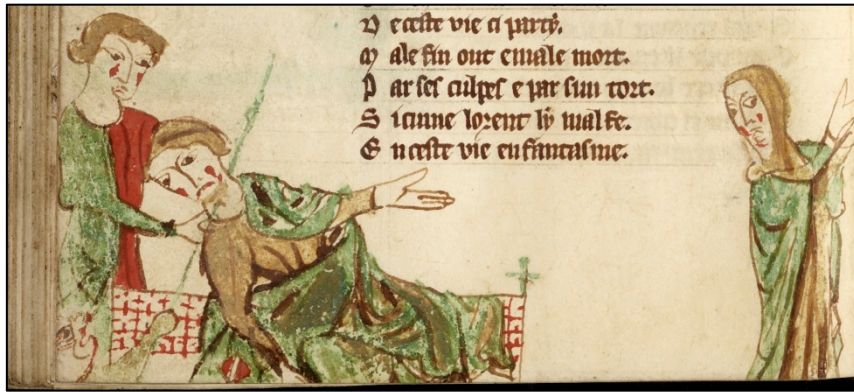 D e ceste vie ci party.
M ale fin out e male mort.
P ar ses culpes e par sun tort.
S icume lorent ly malfe.
E n ceste vie enfantasme.